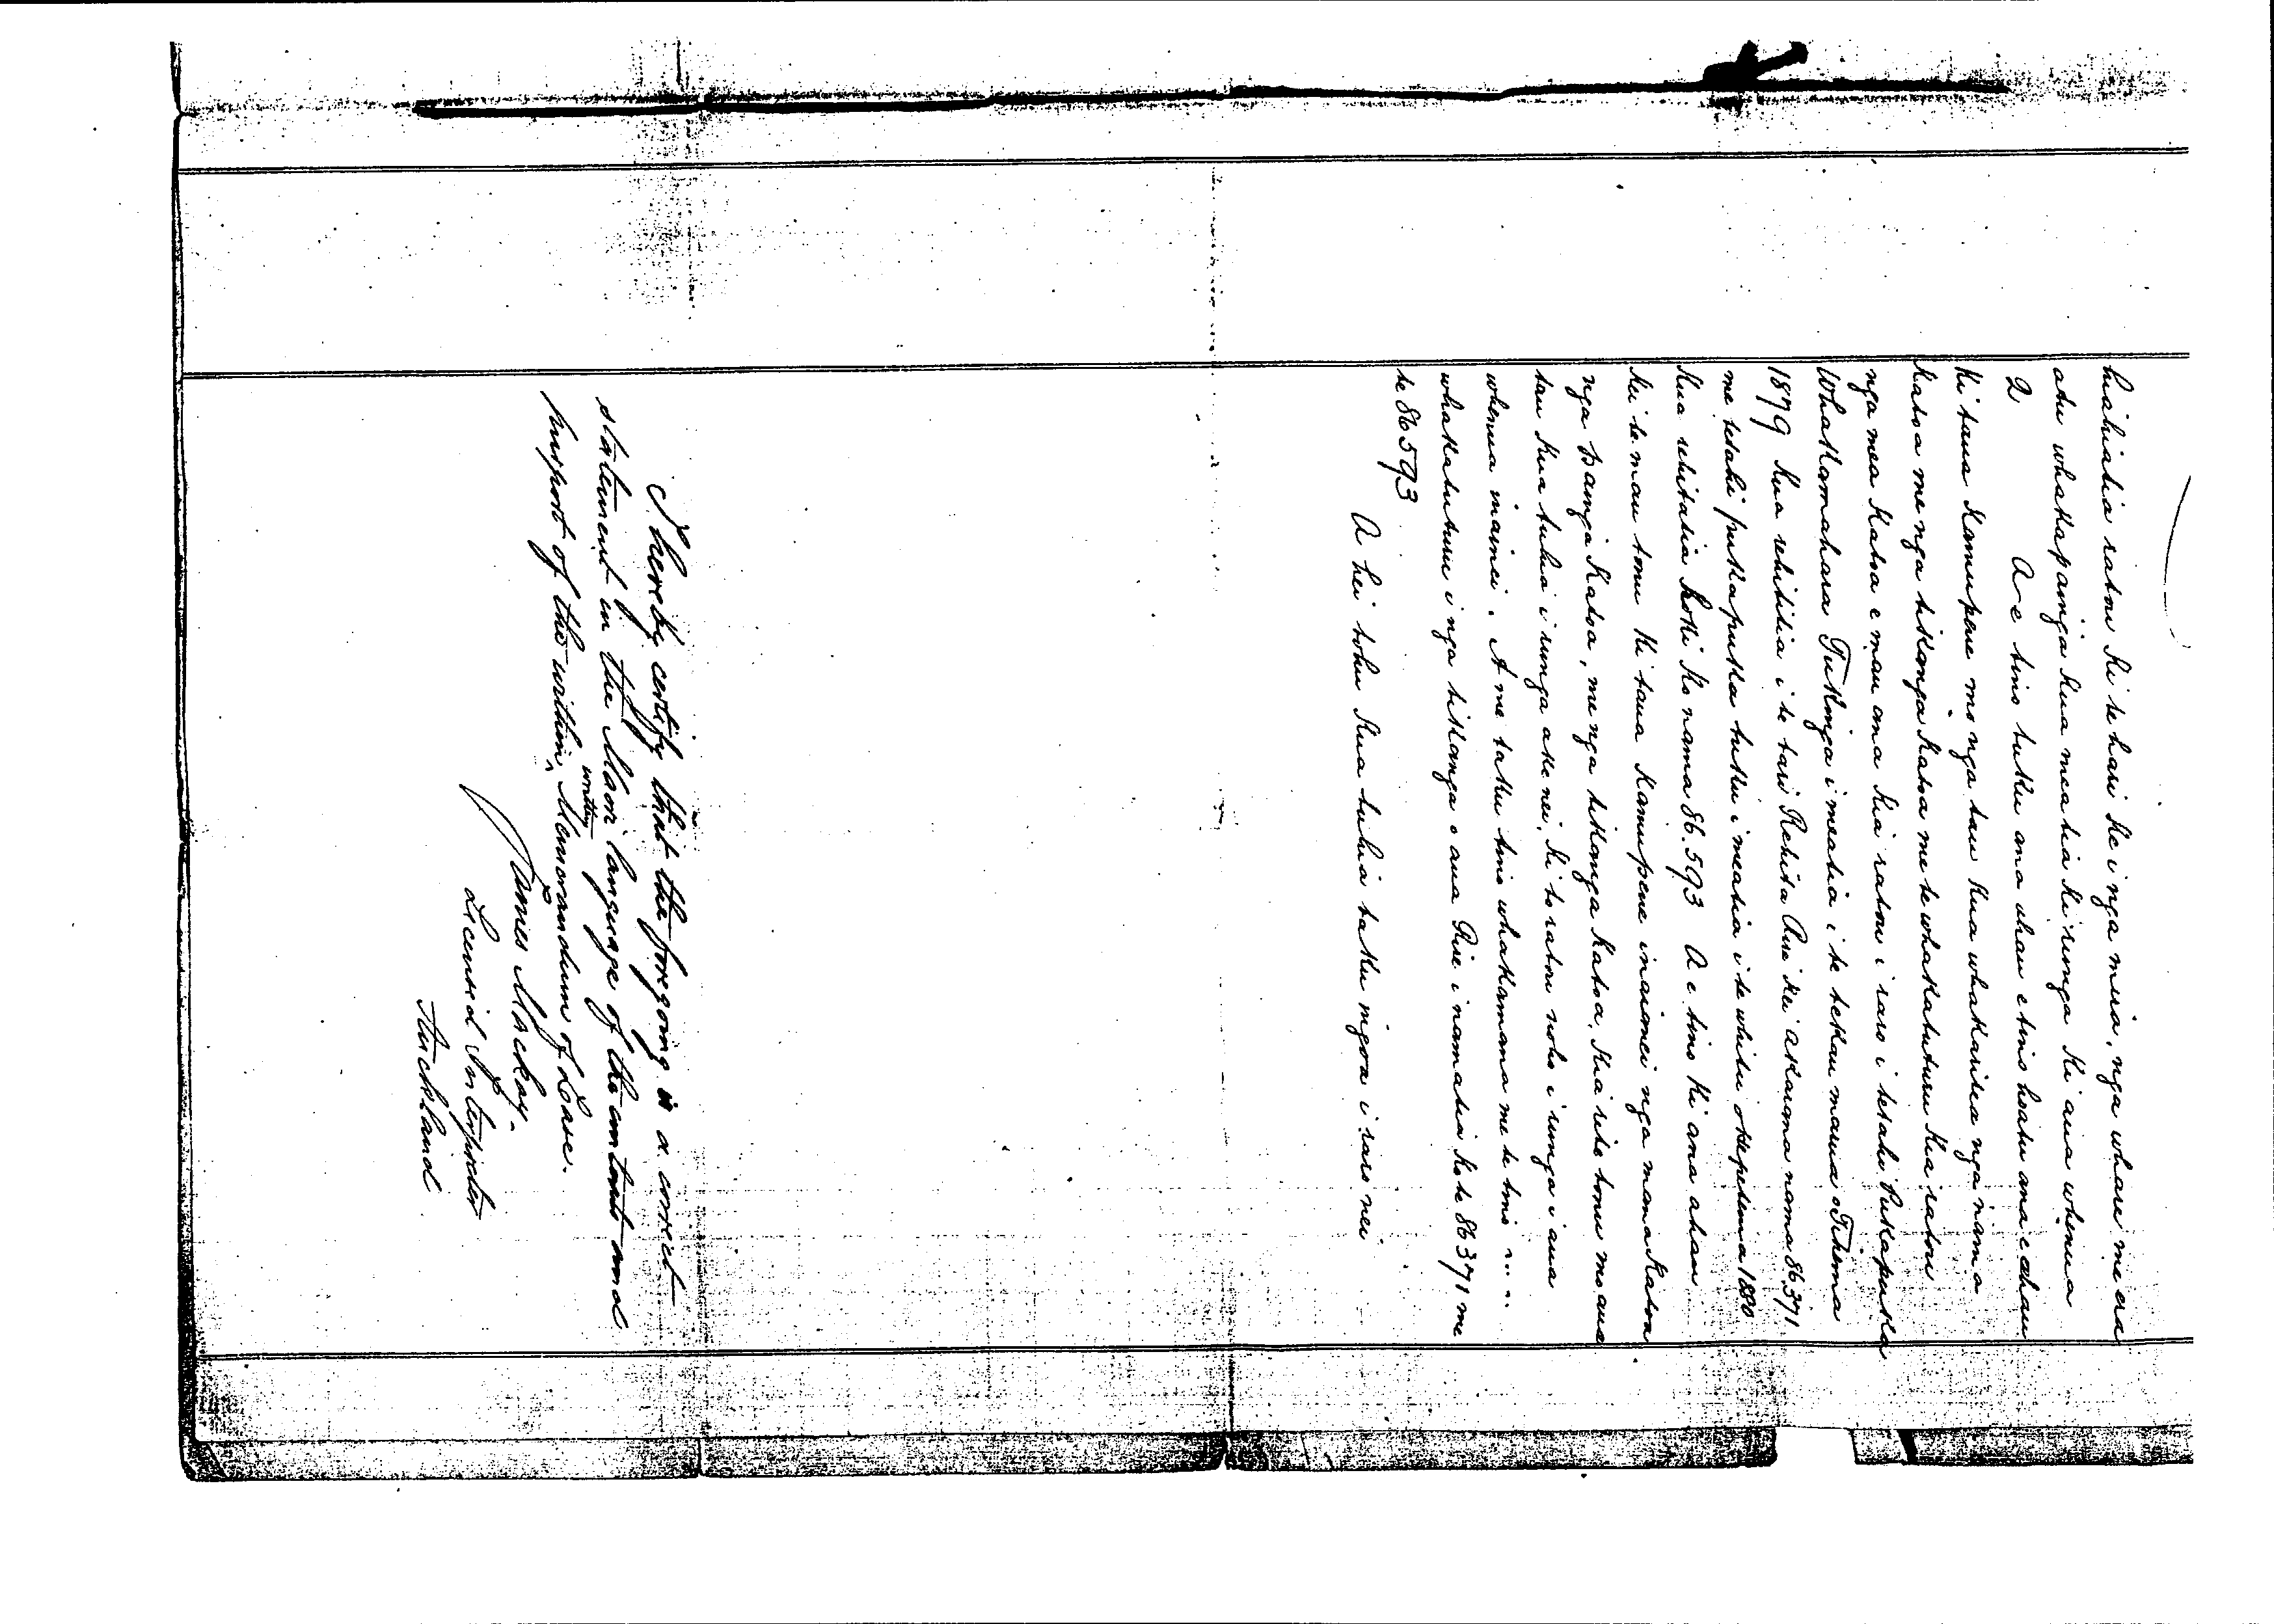 hiahiatia ratou ki te hari ke i nga miira, nga whare me era
atu whakapainga kua meatia ki runga ki aua whenua
2 A e tino tuku ana ahau e tino hoatu ana e ahau
ki taua Kamupene mo nga tau kua whakaritea nga mana
katoa me nga tikanga katoa me te whakatuturu kia ratou
nga mea katoa e mau ana kia ratou i raro i tetahi Pukapuka
Whakamahara Tukunga i meatia i te tekau marua o Tihema
1879 kua rehitatia i te tari Rehita Ture kei Akarana nama 86.371
me tetahi pukapuka tuku i meatia i te whitu o Hepetema 1880
kua rehitatia hoki ko nama 86.593 A e tino ki ana ahau
kei te mau tonu ki taua Kamupene inaianei nga mana katoa
nga painga katoa, me nga tikanga katoa, kia rite tonu mo aua
tau kua tuhia i runga ake nei, ki to ratou noho i runga i aua
whenua inainei. A me taku tino whakamana me te tino
whakatuturu i nga tikanga o aua Riihi i namatia ko te 86371 me
te 86593
A hei tohu kua tuhia taku ingoa i raro nei
I hereby certify that the foregoing is a correct
statement in the Maori language of the contents and
purport of the within written Memorandum of Lease.
James Mackay.
Licensed Interpreter
Auckland